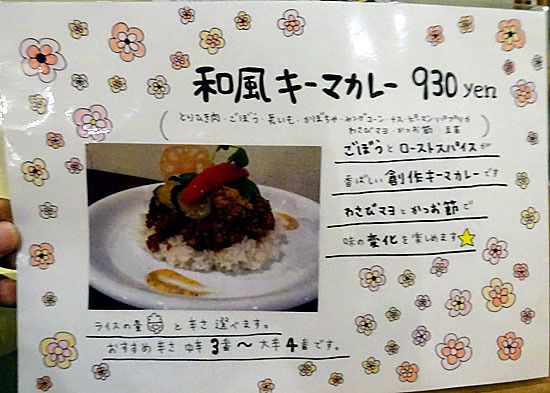 和風キーマカレー 930yen
(とりひき肉・ごぼう・長いも・かぼちゃ・ヤングコーン・ナス・ピーマン・パプリカ
わさびマヨ・かつお節・豆苗)
ごぼうとローストスパイスが
香ばしい創作キーマカレーです
わさびマヨとかつお節で
味の変化を楽しめます
ライスの量と辛さ選べます。
おすすめ辛さ 中辛3番〜大辛4番です。